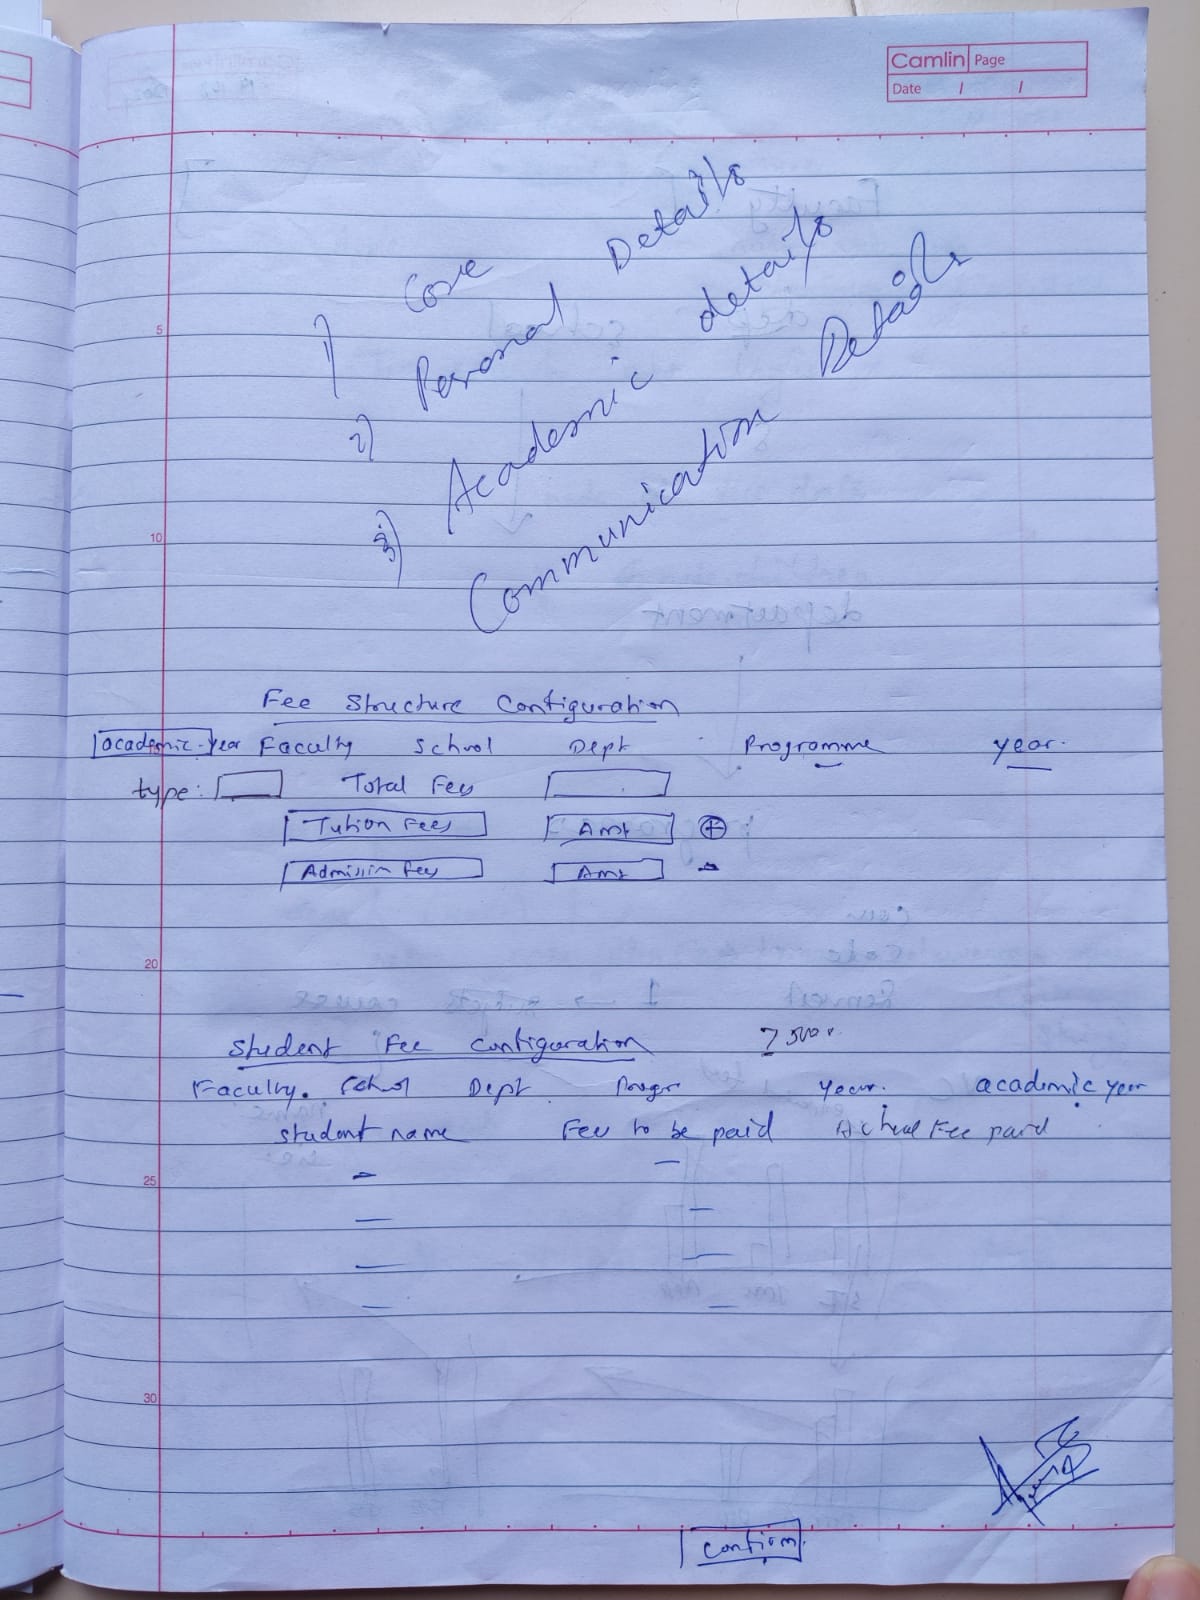 Camlin Page
Date / /
1) Core
2) Personal Details
3) Academic details
Communication Details
Fee Structure Configuration
academic year Faculty School Dept Programme year.
type: Total Fees
Tution Fees Amt +
Admission Fees Amt -
Student Fee Configuration
Faculty. School Dept Progr year. academic year
student name Fee to be paid Actual Fee paid
confirm.
5
10
20
25
30